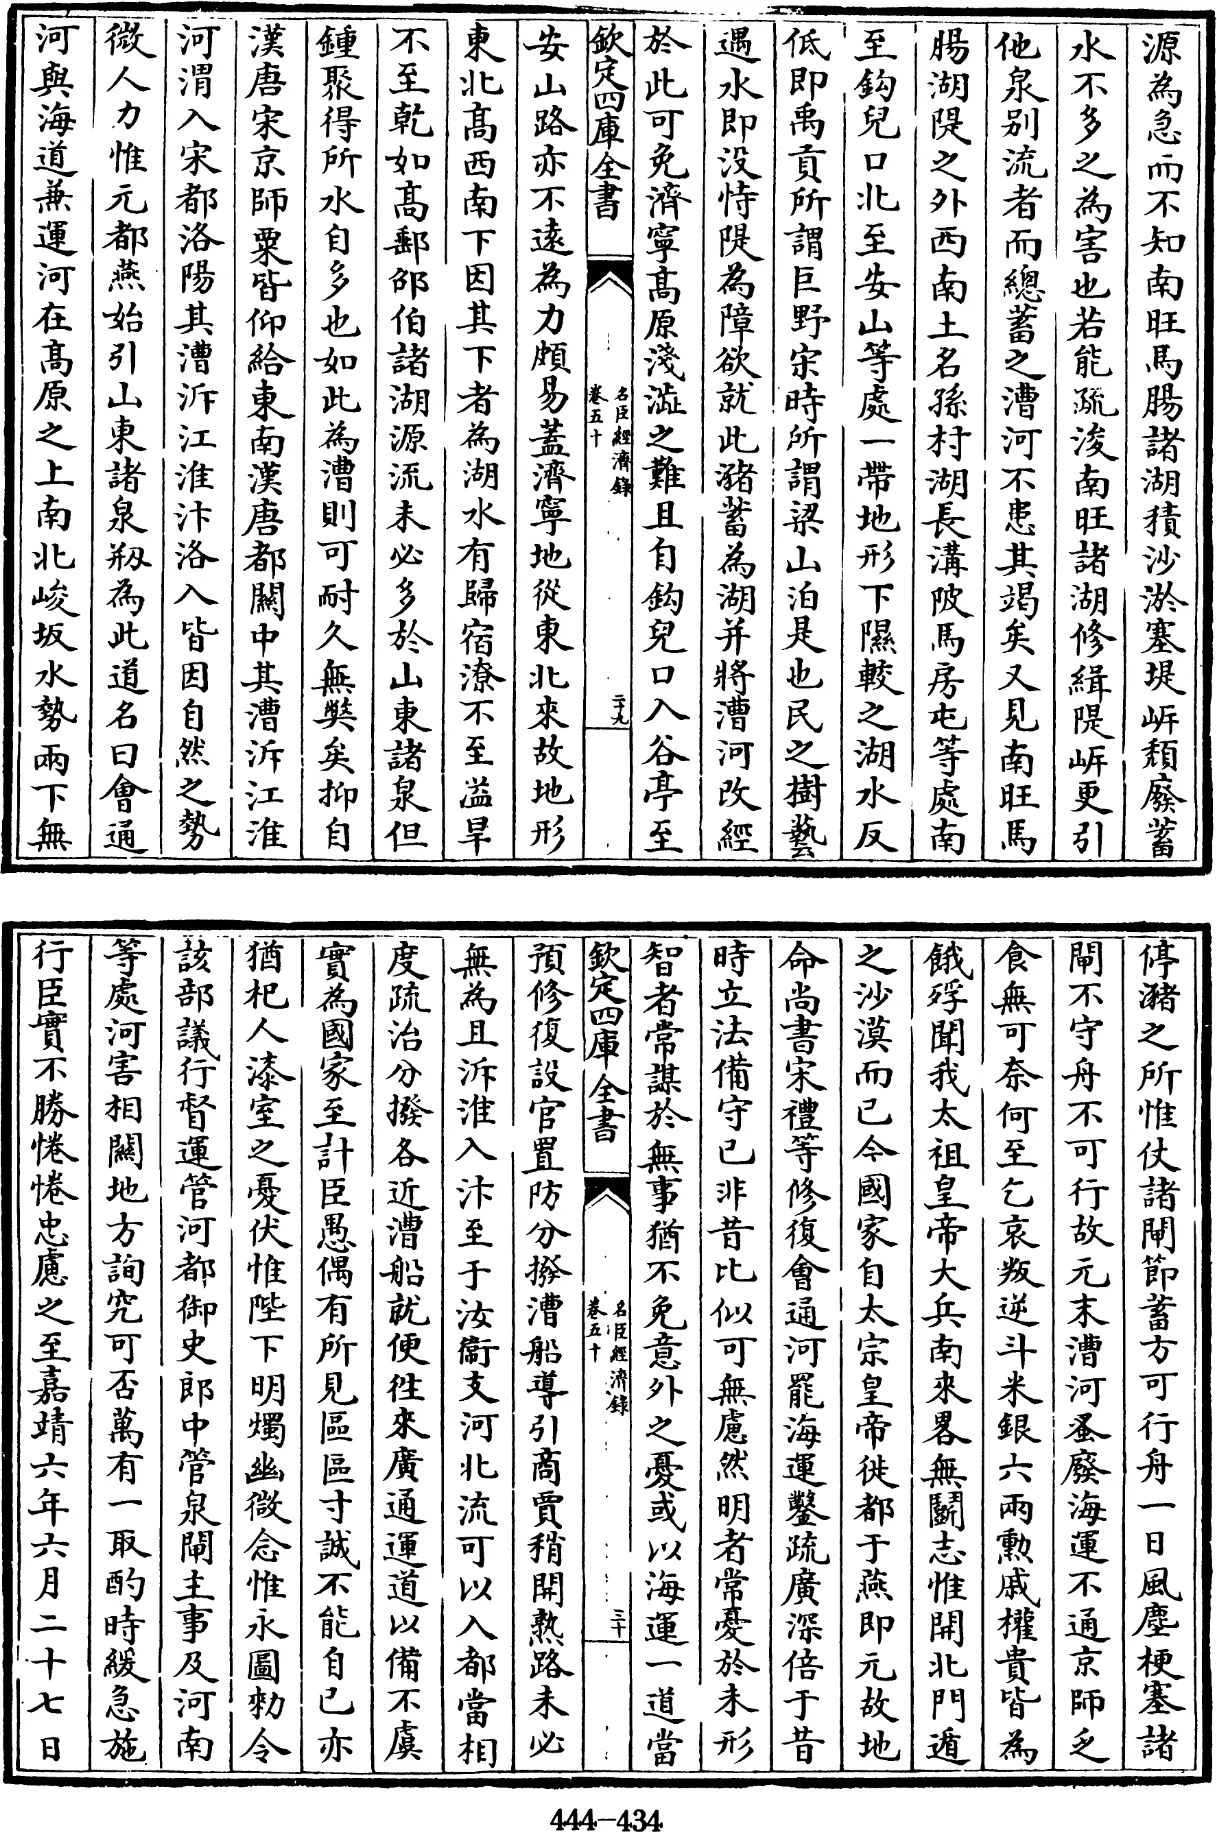 源為急而不知南旺馬腸諸湖積沙淤塞堤岍頽廢蓄
水不多之為害也若能疏浚南旺諸湖修緝隄岍更引
他泉别流者而總蓄之漕河不患其竭矣又見南旺馬
腸湖隄之外西南土名孫村湖長溝陂馬房屯等處南
至鈎兒口北至安山等處一帶地形下隰較之湖水反
低即禹貢所謂巨野宋時所謂梁山泊是也民之樹藝
遇水即没恃隄為障欲就此瀦蓄為湖并將漕河改經
於此可免濟寧髙原淺澁之難且自鈎兒口入谷亭至
欽定四庫全書
名臣經濟錄
卷五十
二十九
安山路亦不逺為力頗易蓋濟寧地從東北來故地形
東北髙西南下因其下者為湖水有歸宿潦不至溢旱
不至乾如髙郵邵伯諸湖源流未必多於山東諸泉但
鍾聚得所水自多也如此為漕則可耐久無獘矣抑自
漢唐宋京師粟皆仰給東南漢唐都關中其漕泝江淮
河渭入宋都洛陽其漕泝江淮汴洛入皆因自然之勢
微人力惟元都燕始引山東諸泉剏為此道名曰會通
河與海道兼運河在髙原之上南北峻坂水勢兩下無
停瀦之所惟仗諸閘節蓄方可行舟一日風塵梗塞諸
閘不守舟不可行故元末漕河蚤廢海運不通京師乏
食無可奈何至乞哀叛逆斗米銀六兩勲戚權貴皆為
餓殍聞我太祖皇帝大兵南來畧無鬭志惟開北門遁
之沙漠而已今國家自太宗皇帝徙都于燕即元故地
命尚書宋禮等修復會通河罷海運鑿疏廣深倍于昔
時立法備守已非昔比似可無慮然明者常憂於未形
智者常謀於無事猶不免意外之憂或以海運一道當
欽定四庫全書
名臣經濟錄
卷五十
三十
預修復設官置防分撥漕船導引商賈稍開熟路未必
無為且泝淮入汴至于汝衛支河北流可以入都當相
度疏治分撥各近漕船就便徃來廣通運道以備不虞
實為國家至計臣愚偶有所見區區寸誠不能自已亦
猶杞人漆室之憂伏惟陛下明燭幽微念惟永圖勑令
該部議行督運管河都御史郎中管泉閘主事及河南
等處河害相關地方詢究可否萬有一取酌時緩急施
行臣實不勝惓惓忠慮之至嘉靖六年六月二十七日
444-434